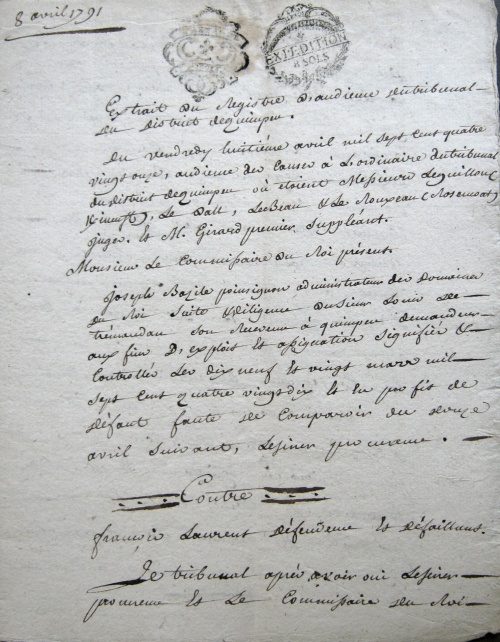 8 avril 1791
EXPEDITION
8 SOLS
Extrait du Registre d'audience du tribunal
du District de quimper.
Du vendredy huitiéme avril mil sept cent quatre
vingt onze, audience des causes à l'ordinaire du tribunal
du district de quimper où étoient Messieurs Leguillou
Kincuff, Le Dall, LeBeau & Le Rouxeau Rosencoat
juges. Et M. Girard premier suppléant.
Monsieur Le Commissaire du Roi présent.
Joseph Bazile poinsignon administrateur des Domaines
du Roi suite & diligence du sieur Louis de
trémaudan son Receveur à quimper demandeur
aux fins D'exploit et assignation signifié &
controllé les dix neuf et vingt mars mil
sept cent quatre vingt dix et en profit de
défaut faute de comparoir du douze
avril suivant, procureur.
Contre
françois Laurent défendeur et défaillant.
Le tribunal après avoir oui
procureur et Le Commissaire du Roi